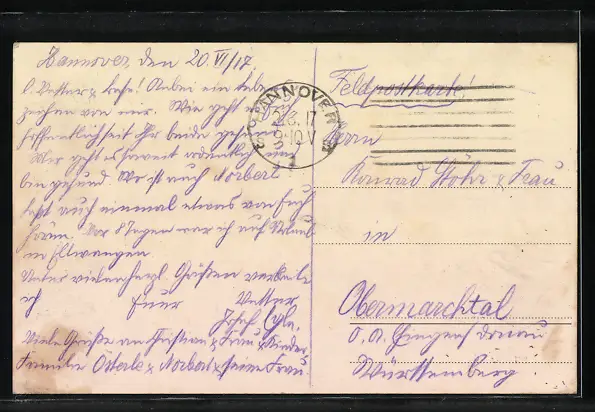 Hannover, den 20. VI/17.
L. Vetter & Base! Anbei ein Lebens
zeichen von mir. Wie geht es Euch
hoffentlich seit Ihr beide gesund
Mir geht es soweit ordentlich und
bin gesund. Wo ist auch Norbert
laßt auch einmal etwas von Euch
hören. Vor 8 Tagen war ich auf Urlaub
in Ellwangen.
Unter vielen herzl. Grüßen verbleibe
ich Euer Vetter
Josef
Viele Grüße an & Frau & Kinder
Familie Osterle & Norbert & seine Frau.
HANNOVER
2.3.17
9-10V
Feldpostkarte!
Herrn
Konrad Stöhr & Frau
in
Obermarchtal
O. A. Ehingen/Donau
Württemberg.